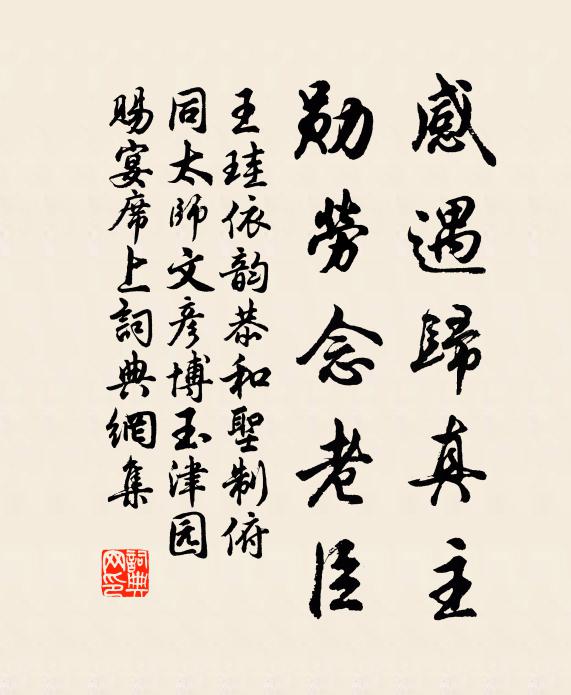 感遇歸真主
勋勞念老臣
王珪依韵恭和聖制俯
同太師文彦博玉津园
賜宴席上詞典網集
詞典
网印